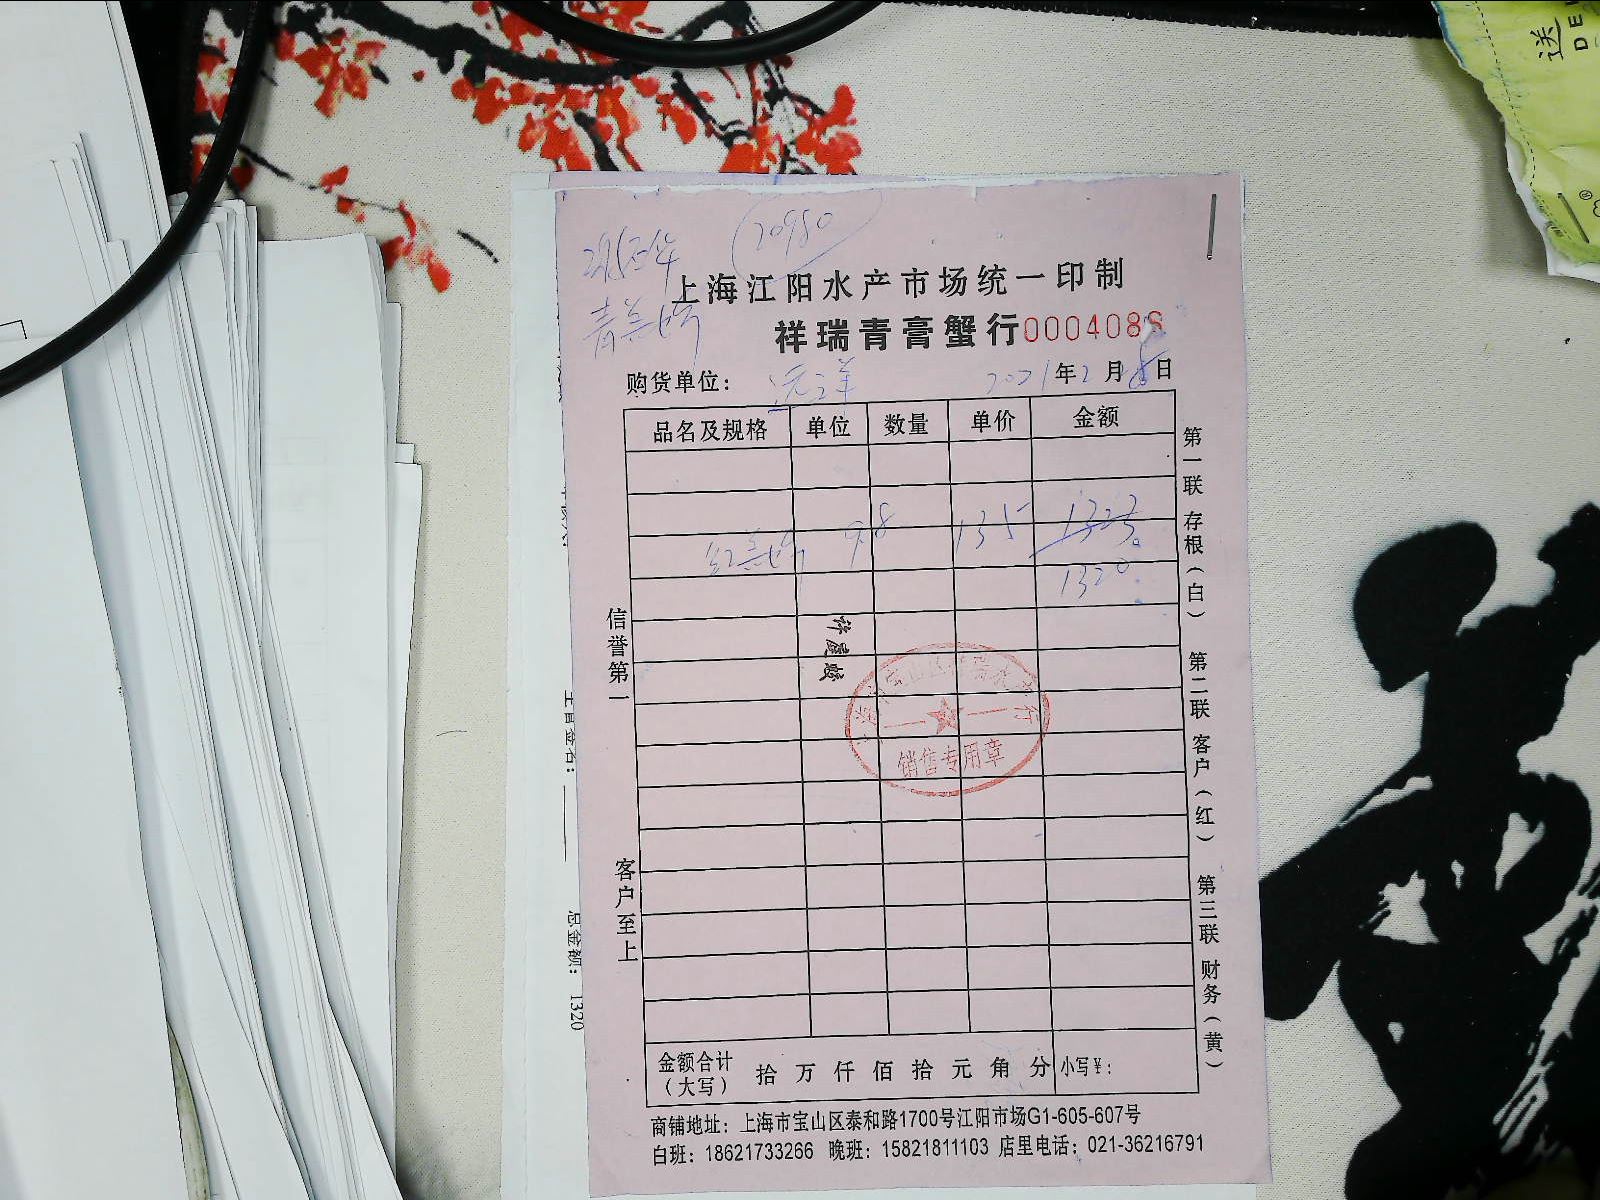 送
20980
上海江阳水产市场统一印制
祥瑞青膏蟹行 0004088
购货单位： 2021年2月 日
品名及规格 单位 数量 单价 金额
9.8 135 1323
1320
许爱娥
销售专用章
信誉第一
客户至上
第一联 存根（白） 第二联 客户（红） 第三联 财务（黄）
总金额： 1320
金额合计（大写） 拾 万 仟 佰 拾 元 角 分 小写¥：
商铺地址：上海市宝山区泰和路1700号江阳市场G1-605-607号
白班：18621733266 晚班：15821811103 店里电话：021-36216791